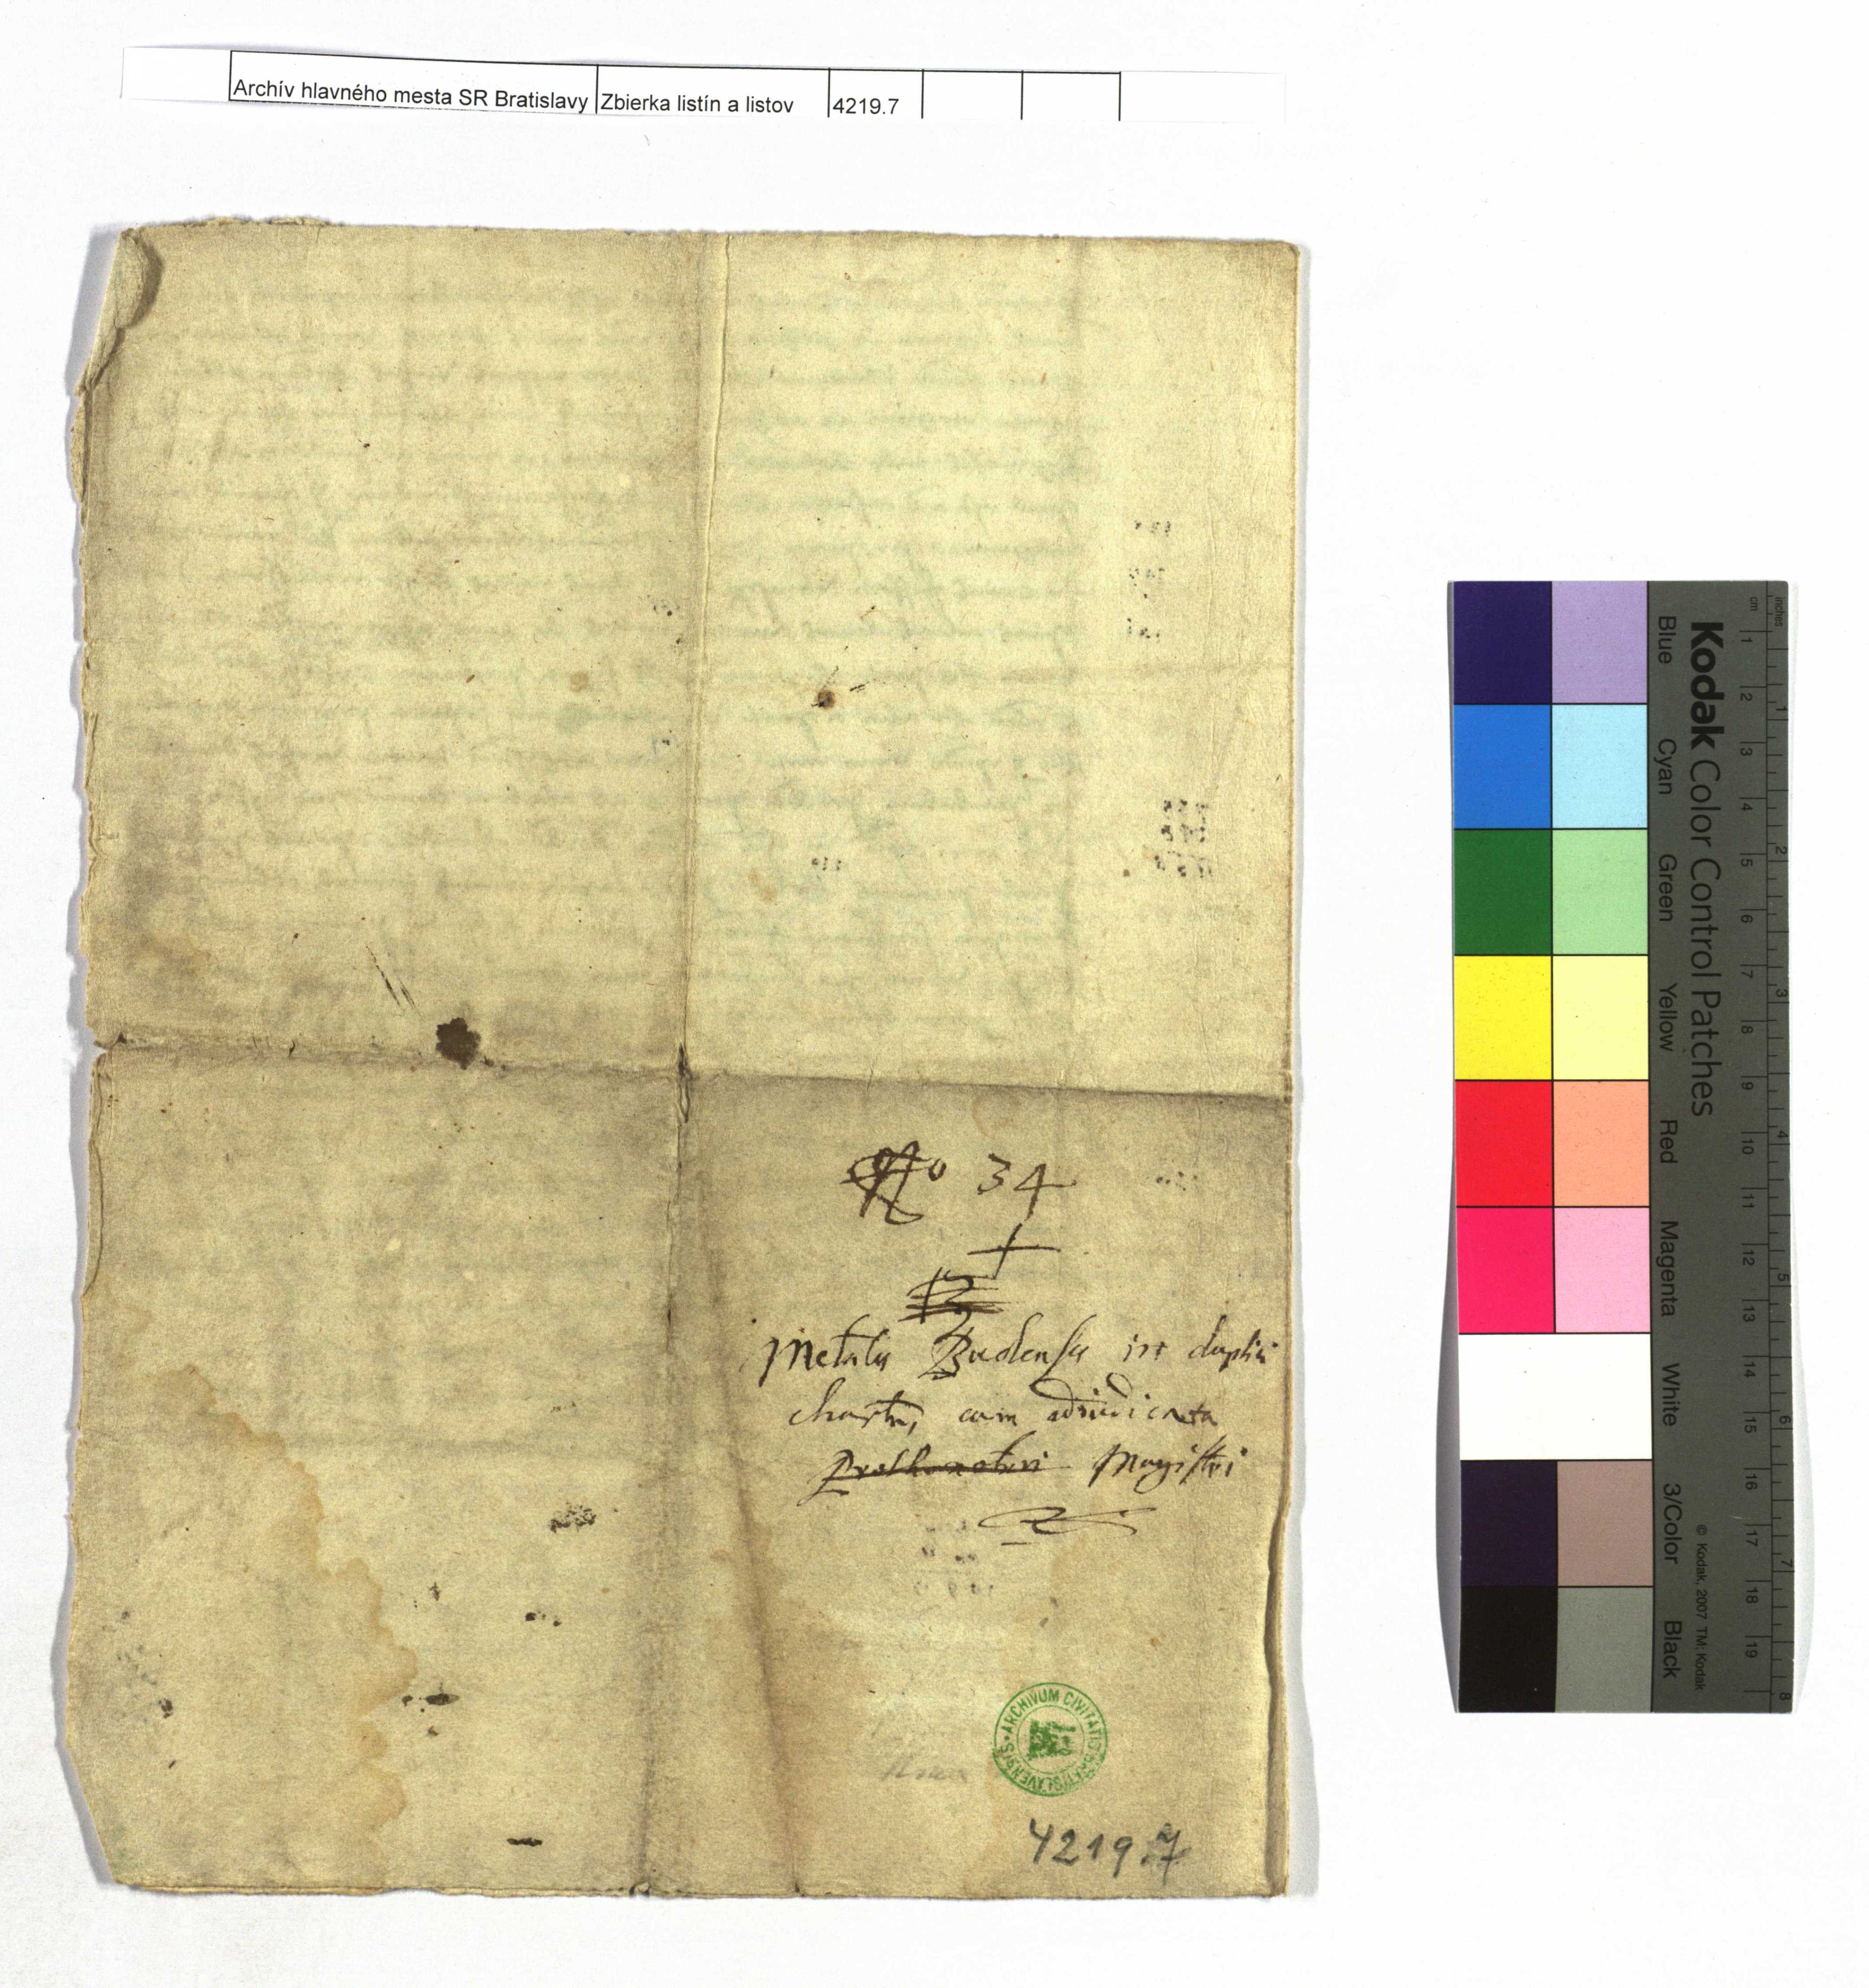 Archív hlavného mesta SR Bratislavy Zbierka listín a listov 4219.7
No 34
Budensis in duplici
cum adiudicata
Prothonotari Magistri
ARCHIVUM CIVITATIS BRATISLAVENSIS
4219.7
Kodak Color Control Patches
Blue Cyan Green Yellow Red Magenta White 3/Color Black
© Kodak, 2007 TM: Kodak
inches 1 2 3 4 5 6 7 8
cm 1 2 3 4 5 6 7 8 9 10 11 12 13 14 15 16 17 18 19